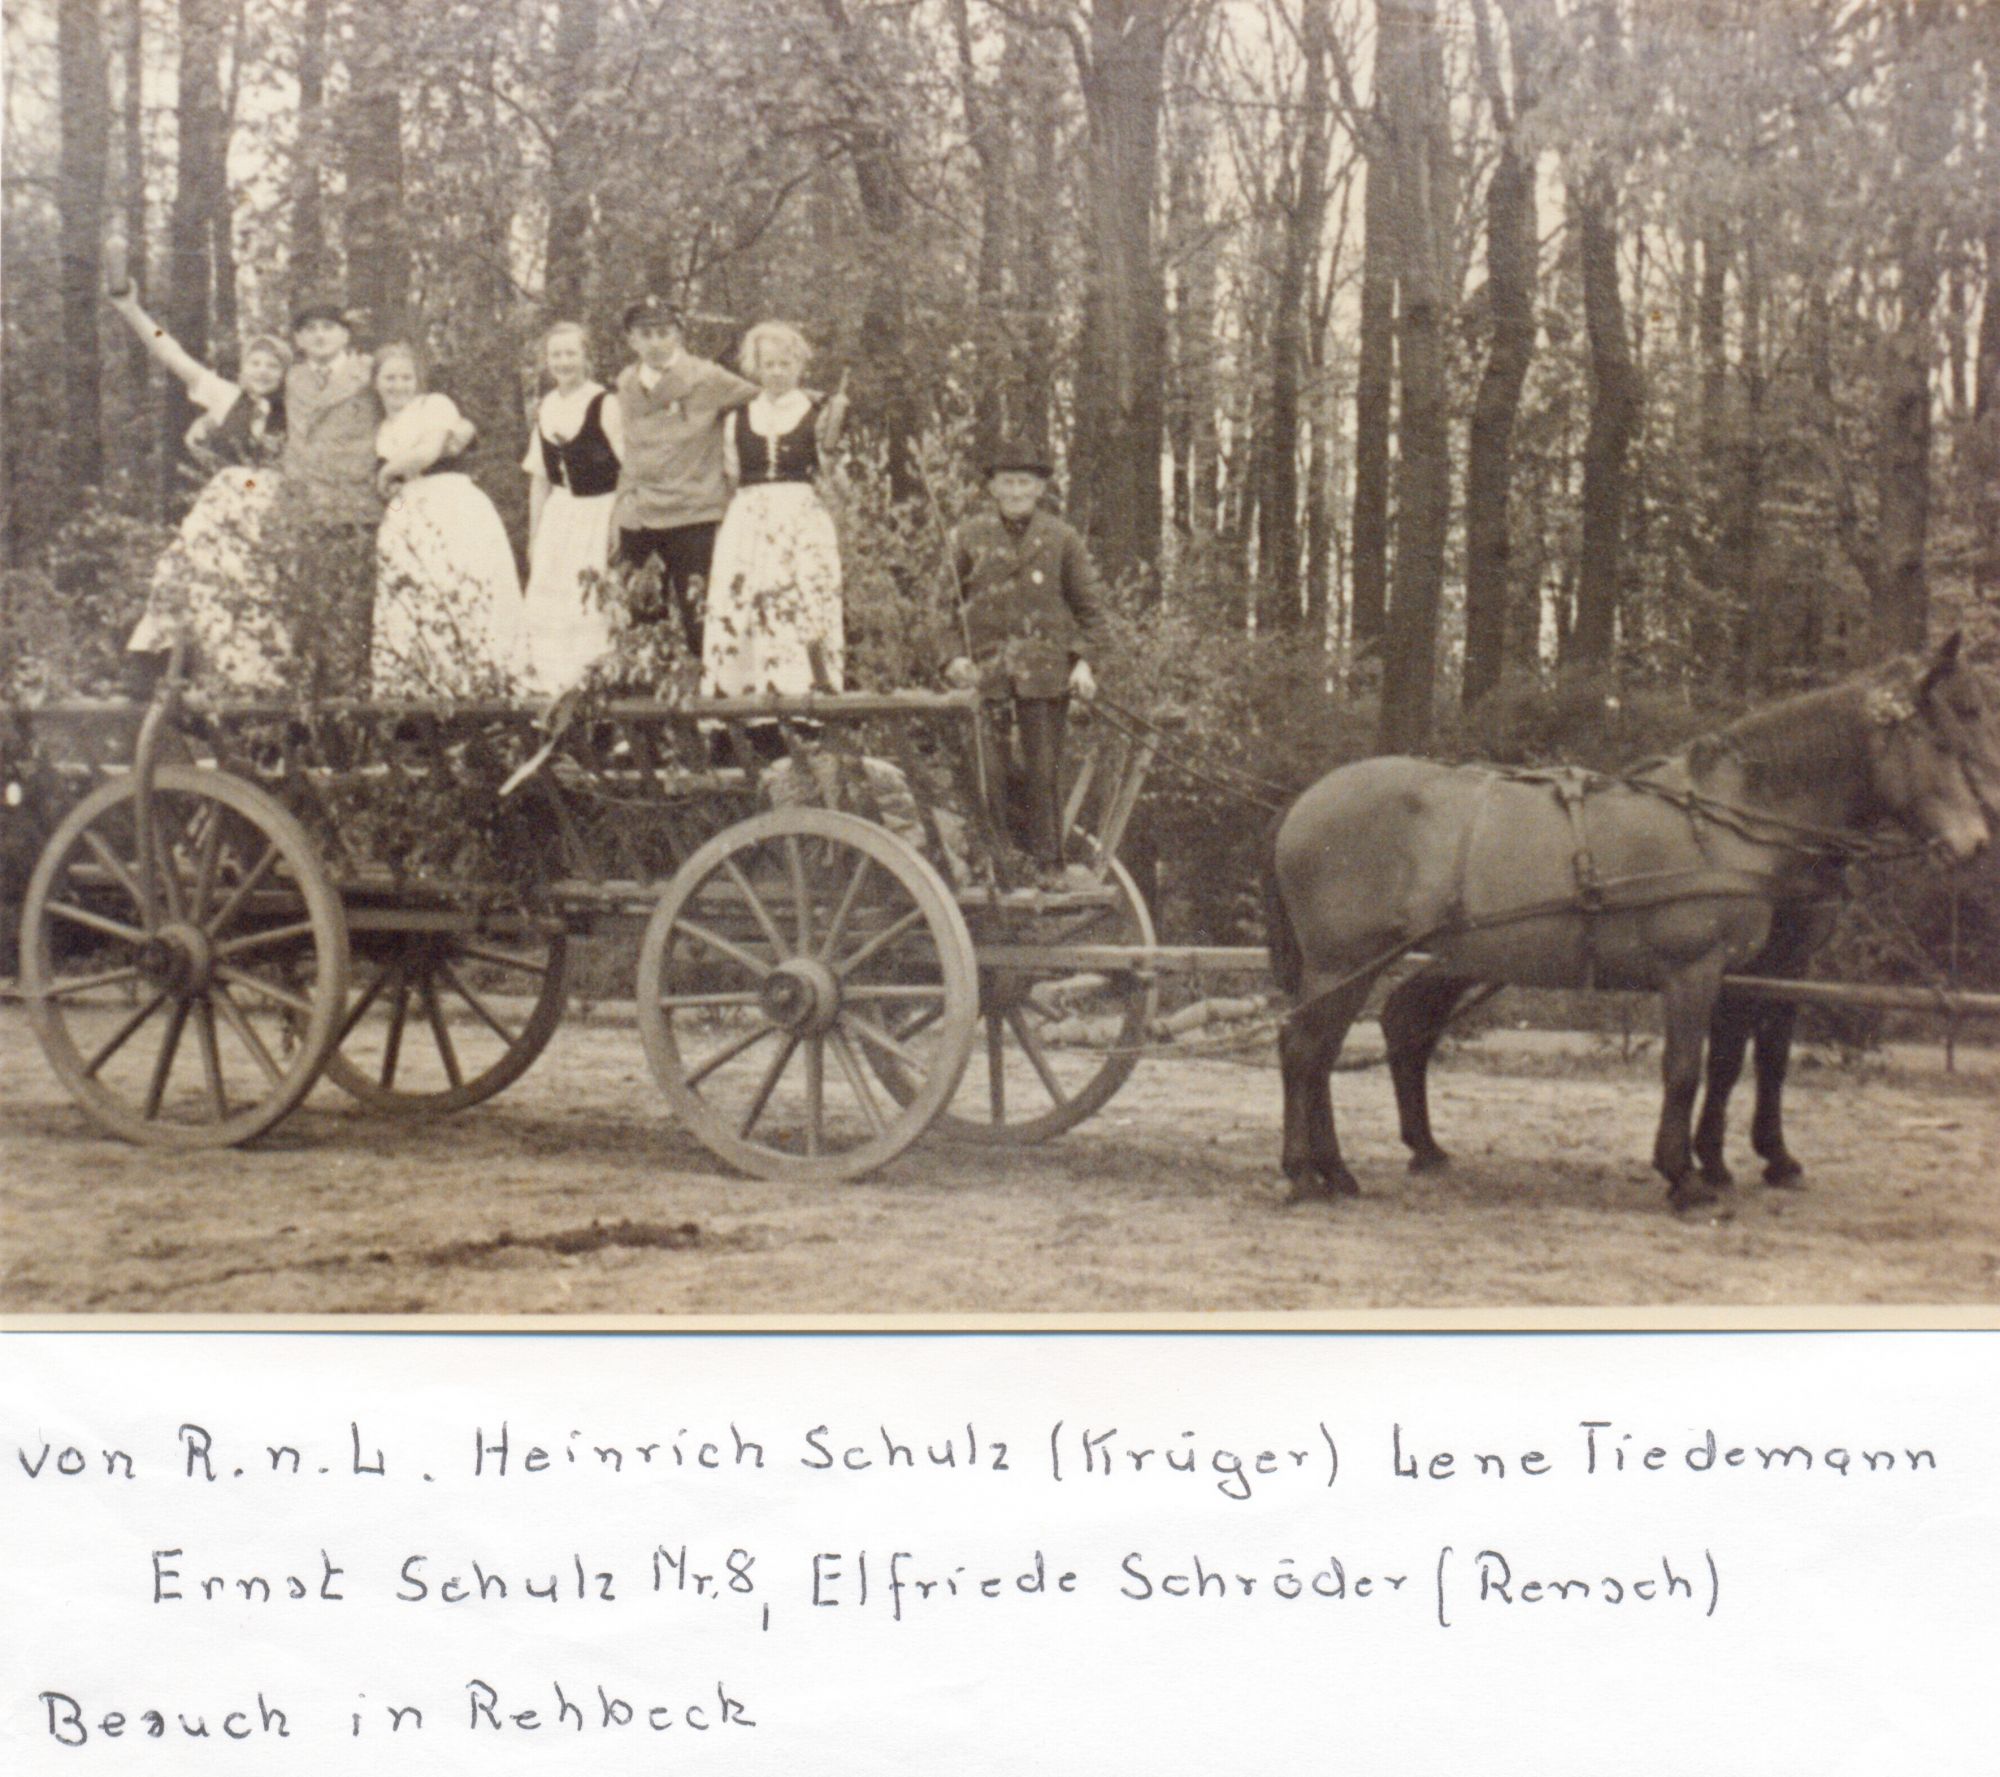 von R. n. L. Heinrich Schulz (Krüger) Lene Tiedemann
Ernst Schulz Nr. 8, Elfriede Schröder (Rensch)
Besuch in Rehbeck